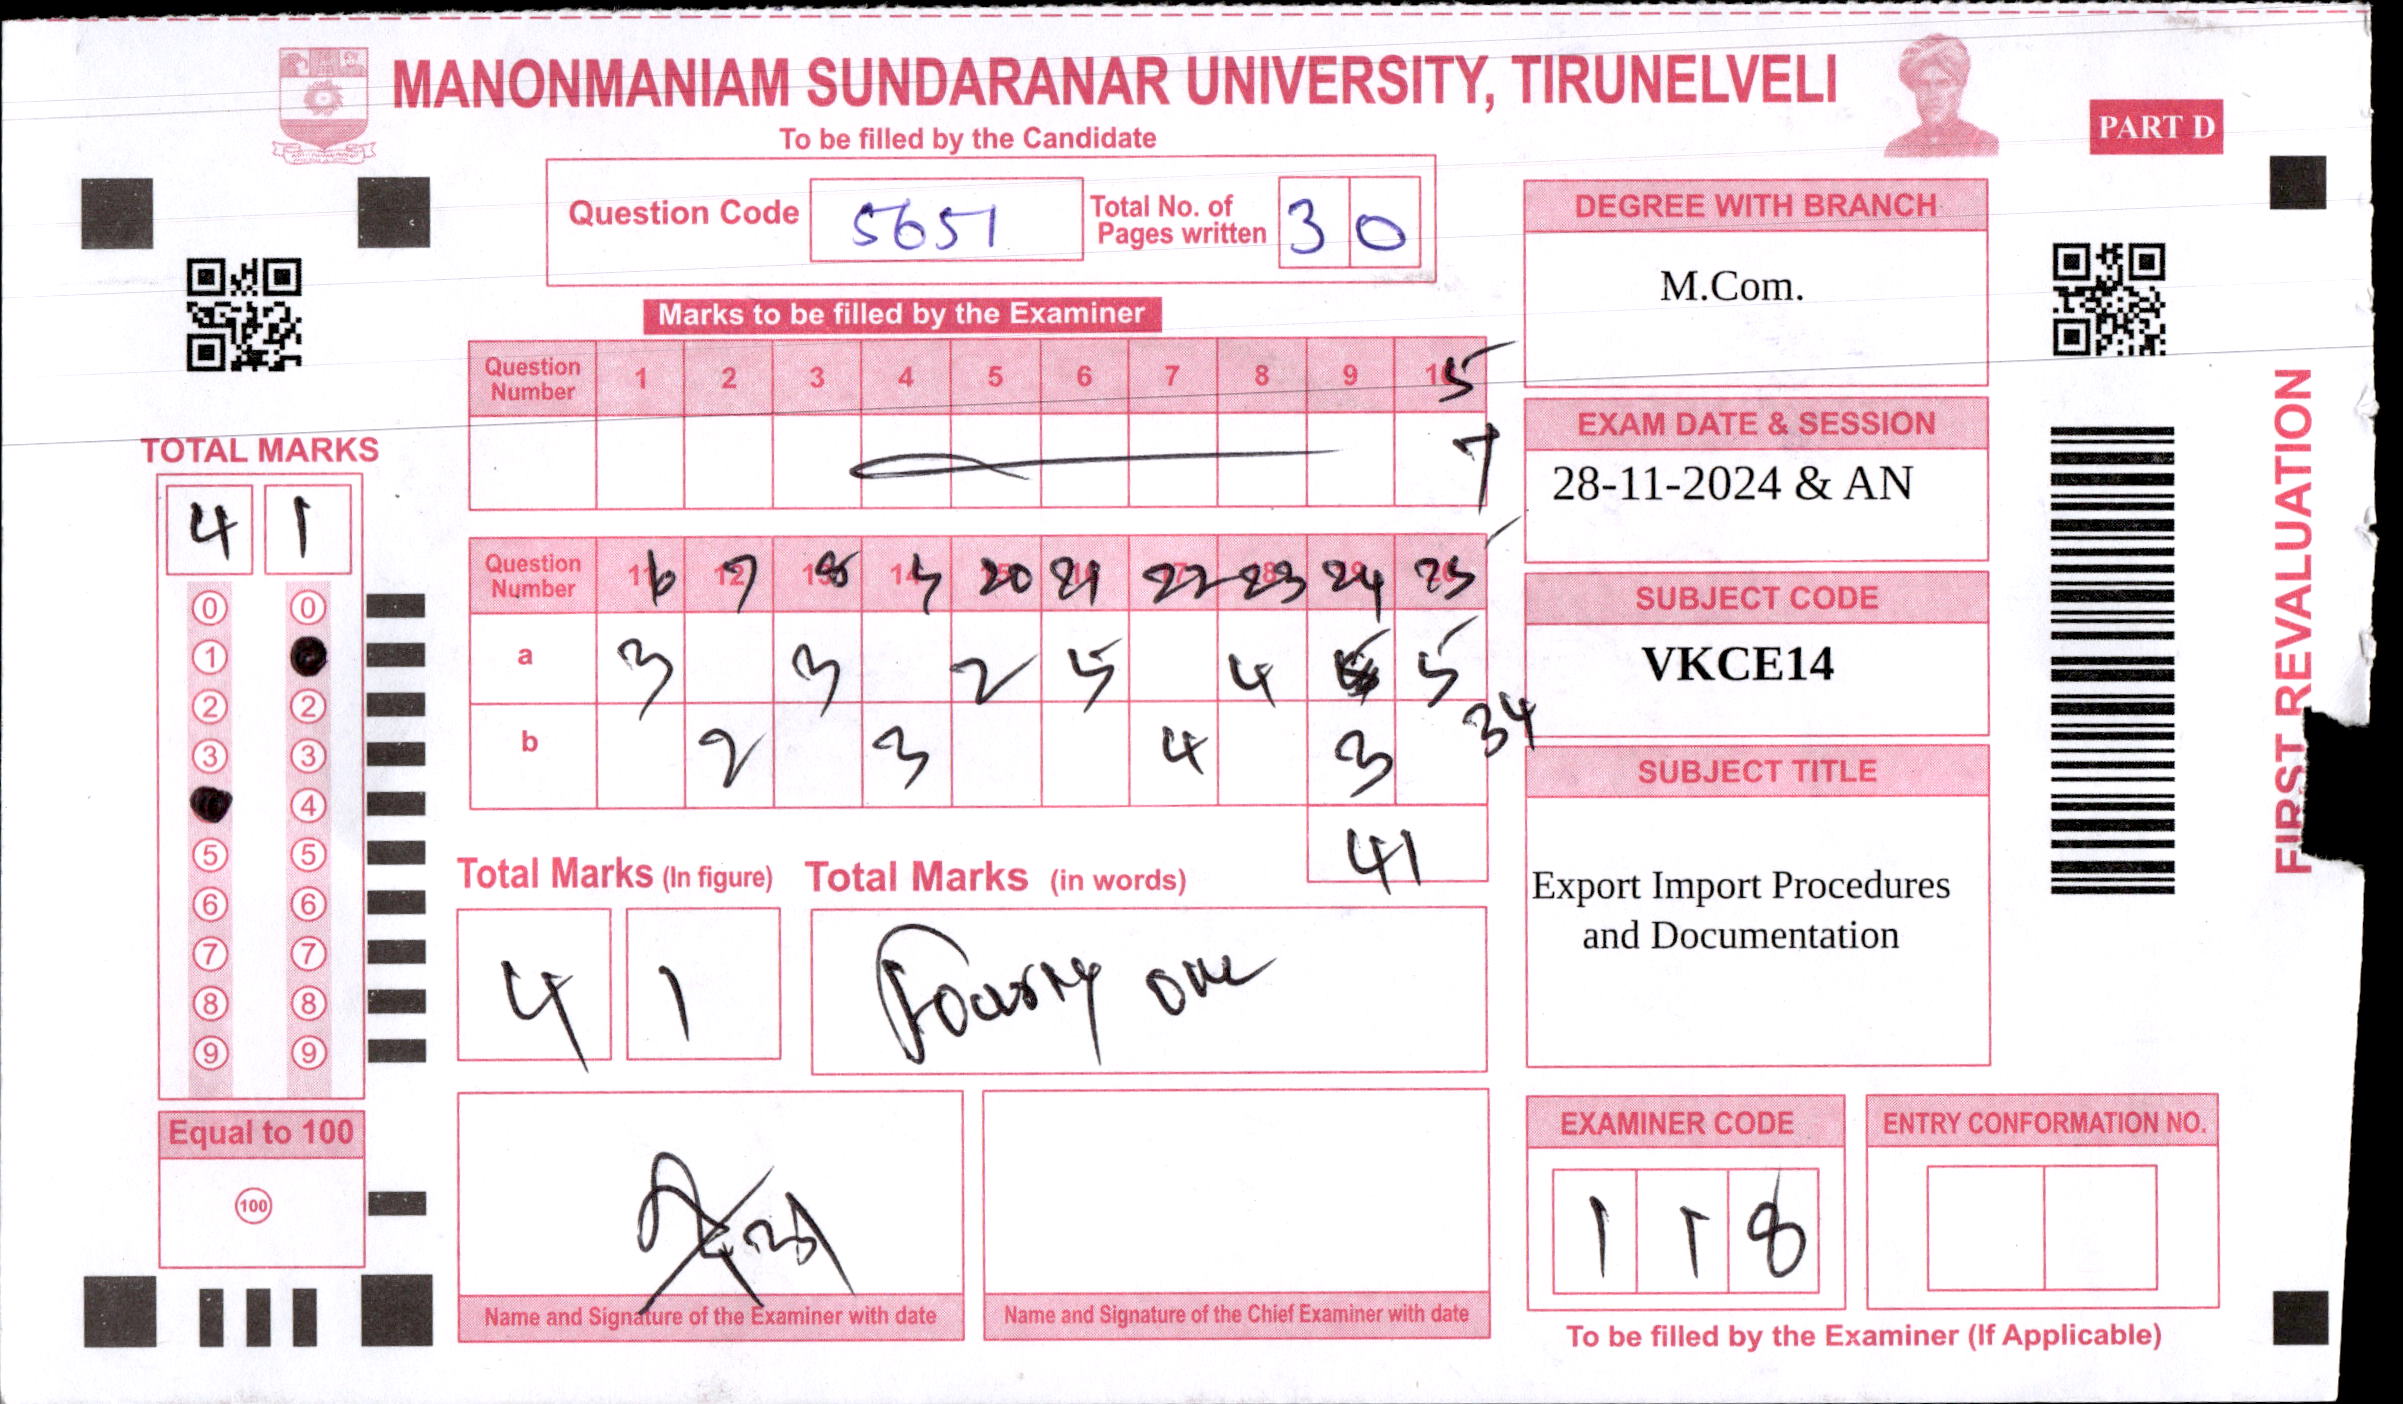 MANONMANIAM SUNDARANAR UNIVERSITY, TIRUNELVELI
PART D
To be filled by the Candidate
Question Code 5651 Total No. of Pages written 3 0
Marks to be filled by the Examiner
Question Number 1 2 3 4 5 6 7 8 9 5
7
Question Number 6 7 8 20 21 22 23 24 25
a 3 3 2 5 4 5
b 2 3 4 3
34
41
TOTAL MARKS
4 1
0 0
1
2 2
3 3
4
5 5
6 6
7 7
8 8
9 9
Equal to 100
100
Total Marks (In figure) Total Marks (in words)
4 1 Fourty one
Name and Signature of the Examiner with date
Name and Signature of the Chief Examiner with date
DEGREE WITH BRANCH
M.Com.
EXAM DATE & SESSION
28-11-2024 & AN
SUBJECT CODE
VKCE14
SUBJECT TITLE
Export Import Procedures
and Documentation
EXAMINER CODE
1 1 8
ENTRY CONFORMATION NO.
To be filled by the Examiner (If Applicable)
FIRST REVALUATION